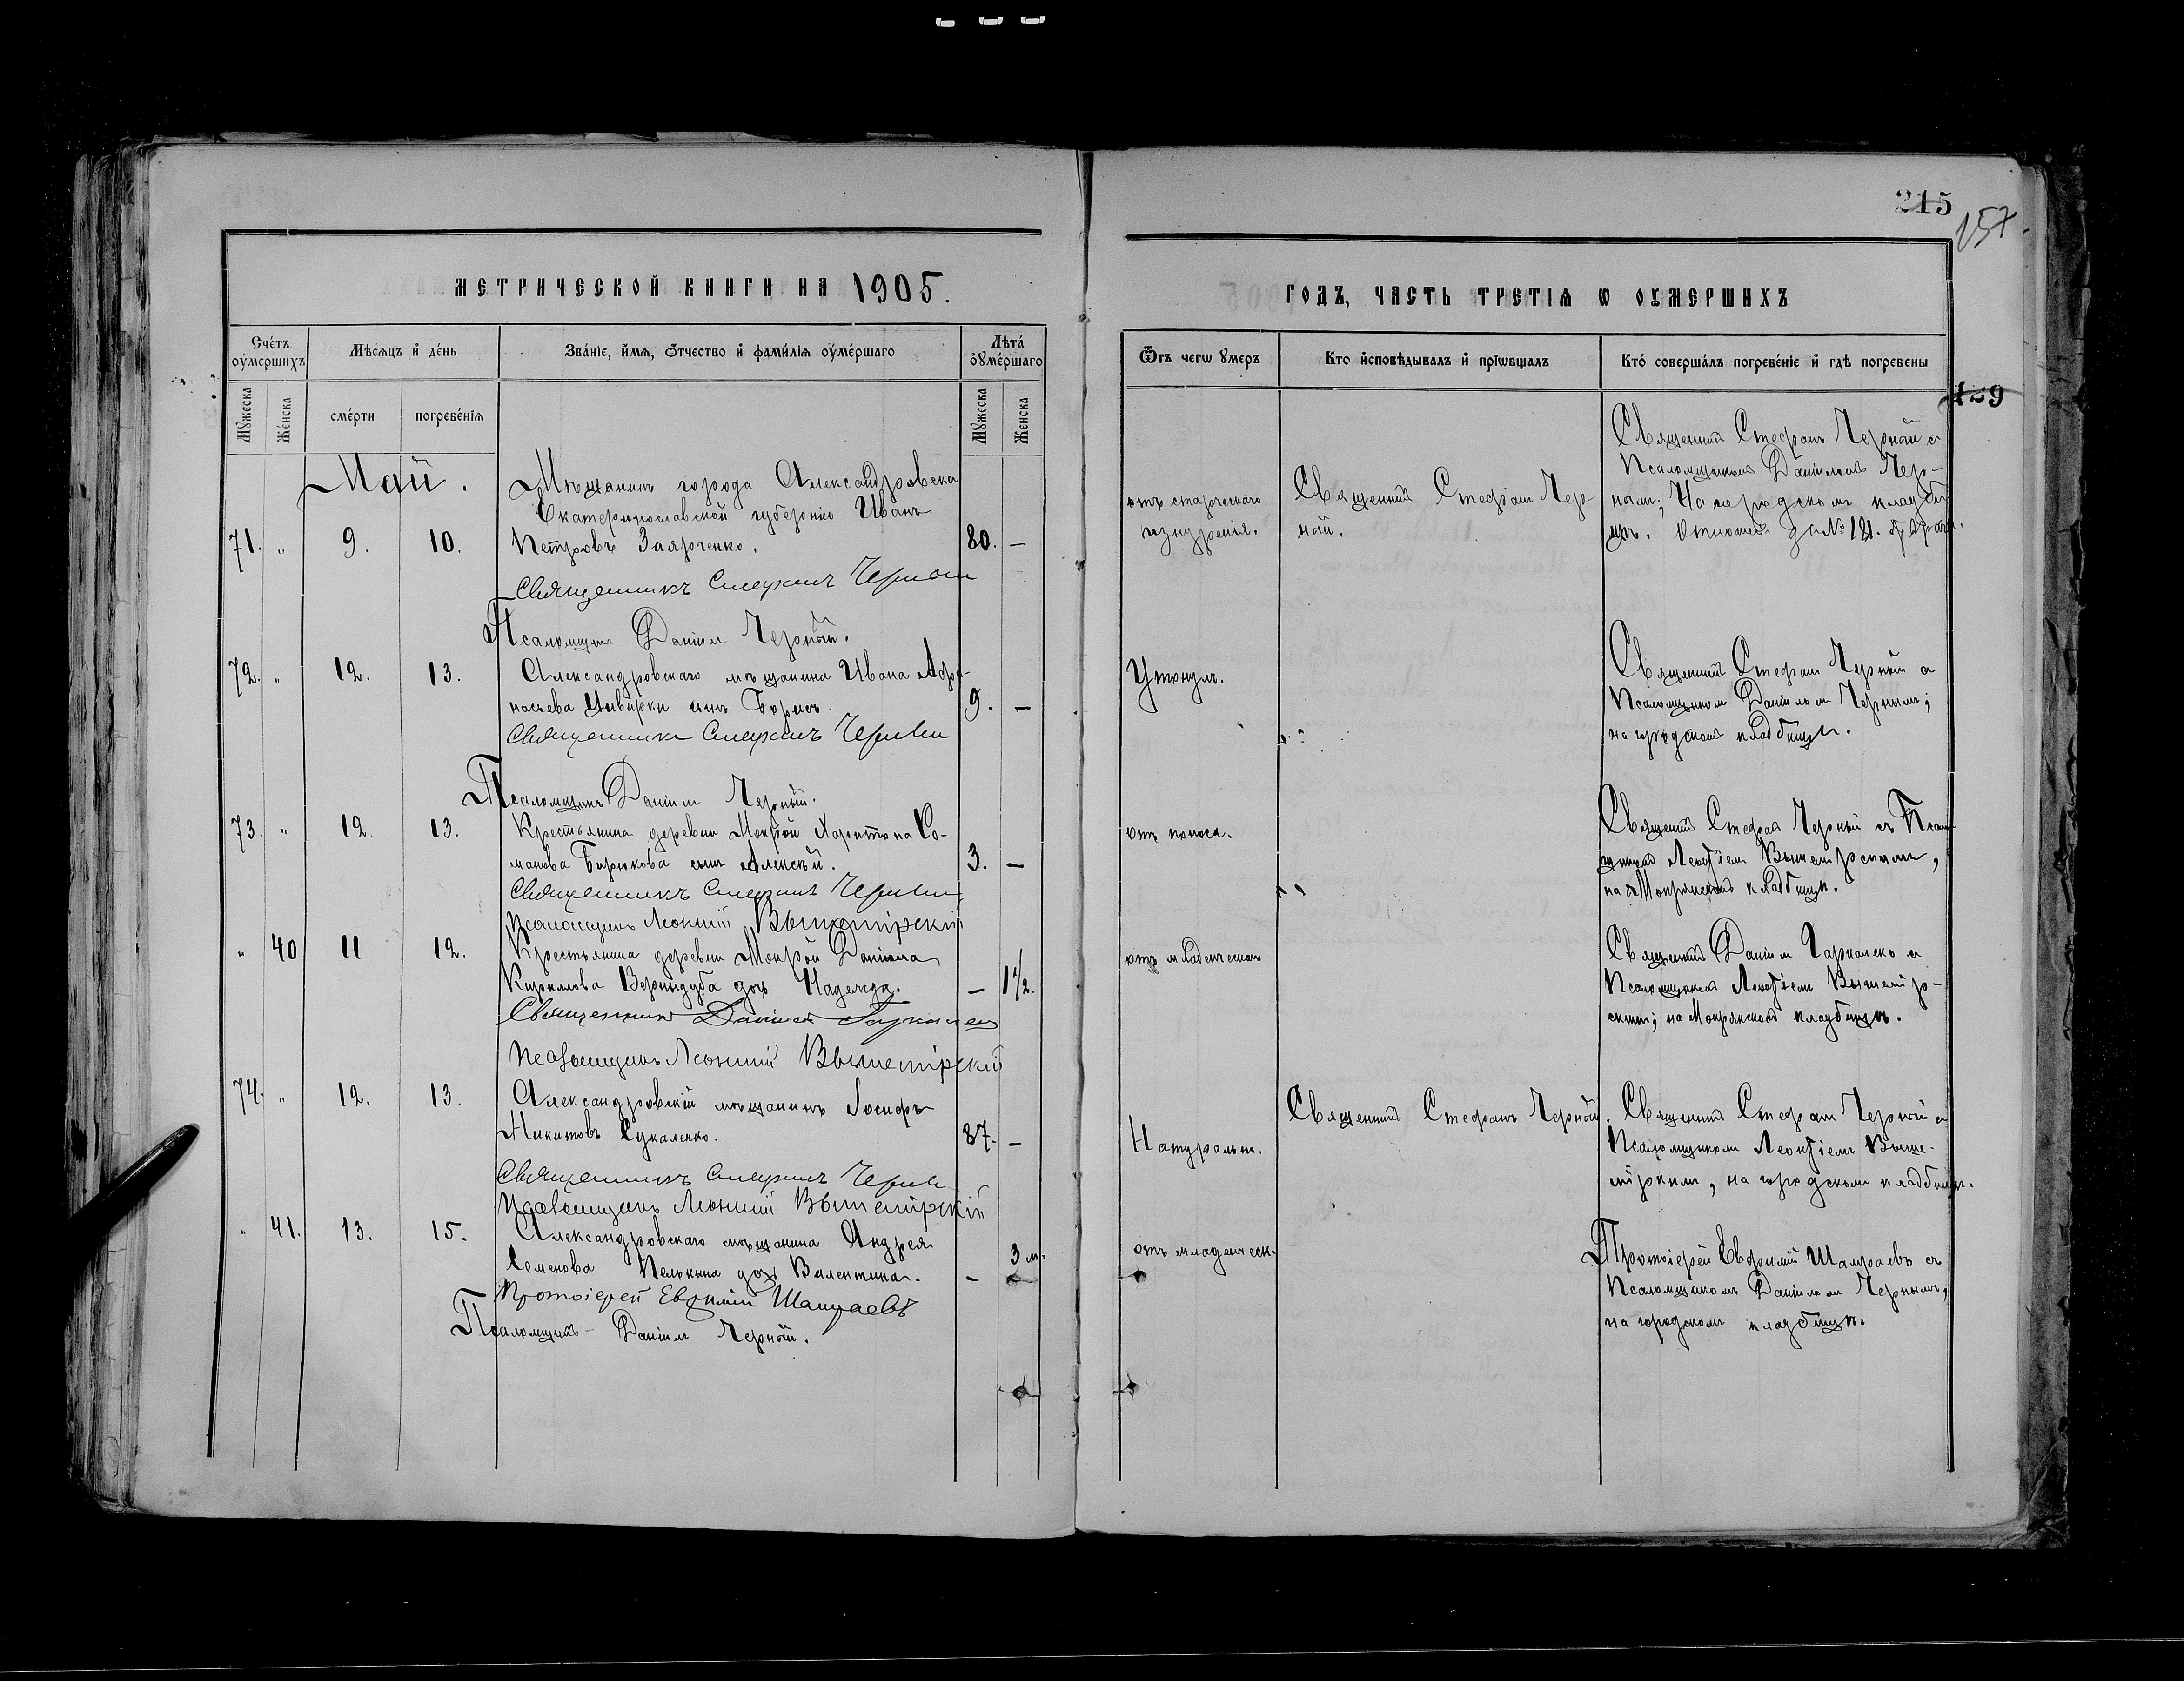 215
157.
МЕТРИЧЕСКОЙ КНИГИ НА 1905.
ГОДЪ, ЧАСТЬ ТРЕТІѦ Ѡ ОУМЕРШИХЪ
Счетъ оумершихъ
Мѣсѧцъ и день
Званіе, имѧ, отчество и фамилія оумершаго
Лѣта оумершаго
Ѿ чегѡ умеръ
Кто исповѣдывалъ и пріѡбщалъ
Кто совершалъ погребеніе и гдѣ погребены
Мужеска
Женска
смерти
погребенія
Мужеска
Женска
129
Май.
Мѣщанинъ города Александровска
Екатеринославской губерніи Иванъ
71. " 9. 10. Петровъ Заярченко. 80. —
Священникъ Стефанъ Черный
Псаломщикъ Даніилъ Черный.
отъ старческаго
изнуренія.
Священникъ Стефанъ Чер-
ный.
Священникъ Стефанъ Черный съ
Псаломщикомъ Даніиломъ Чер-
нымъ; На городскомъ кладби
щѣ. за № 181.
72. " 12. 13. Александровскаго мѣщанина Ивана Афа-
насьева Цивирки сынъ Борисъ. 9. —
Священникъ Стефанъ Черный
Псаломщикъ Даніилъ Черный.
Утонулъ.
Священникъ Стефанъ Черный съ
Псаломщикомъ Даніиломъ Чернымъ;
на городскомъ кладбищѣ.
73. " 12. 13. Крестьянина деревни Мокрой Харитона Ро-
манова Бирюкова сынъ Алексѣй. 3. —
Священникъ Стефанъ Черный
Псаломщикъ Леонтій Вышетірскій
отъ поноса.
Священникъ Стефанъ Черный съ Псалом
щикомъ Леонтіемъ
на Мокрянскомъ кладбищѣ.
" 40 11 12. Крестьянина деревни Мокрой Даніила
Кирилова Вернидуба дочь Надежда. — 1½.
Священникъ Даніилъ
Псаломщикъ Леонтій Вышетірскій
отъ младенческой
Священникъ Даніилъ съ
Псаломщикомъ Леонтіемъ Вышетір-
скимъ; на Мокрянскомъ кладбищѣ.
74. " 12. 13. Александровскій мѣщанинъ Іосифъ
Никитовъ Сукаленко. 87. —
Священникъ Стефанъ Черный
Псаломщикъ Леонтій Вышетірскій
Натуральн.
Священникъ Стефанъ Черный.
Священникъ Стефанъ Черный съ
Псаломщикомъ Леонтіемъ Выше-
тірскимъ, на городскомъ кладбищѣ.
" 41. 13. 15. Александровскаго мѣщанина Андрея
Семенова дочь Валентина. — 3 м.
Протоіерей Евфимій Шамраевъ
Псаломщикъ Даніилъ Черный.
отъ младенческ.
Протоіерей Евфимій Шамраевъ съ
Псаломщикомъ Даніиломъ Чернымъ,
на городскомъ кладбищѣ.